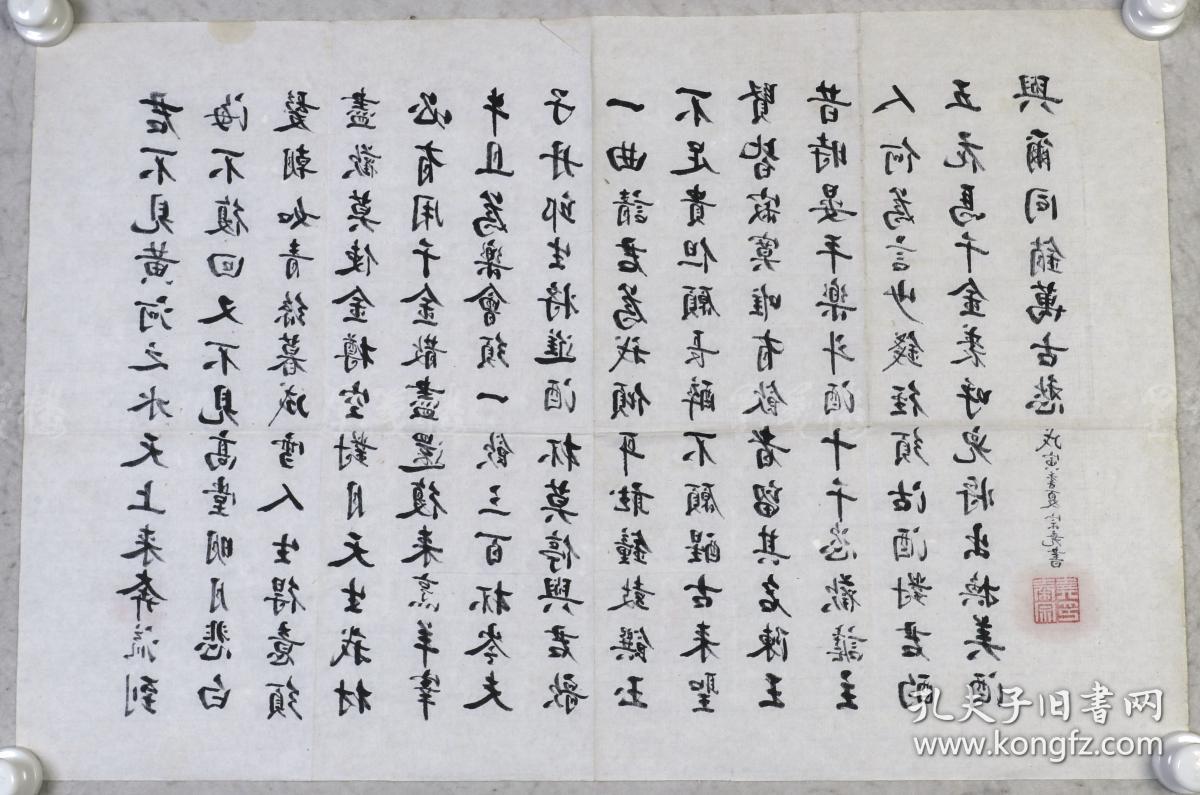 君不見黃河之水天上来奔流到
海不復回又不見高堂明月悲白
髮朝如青絲暮成雪人生得意須
盡歡莫使金樽空對月天生我材
必有用千金散盡還復来烹羊宰
牛且為樂會須一飲三百杯岑夫
子丹邱生將進酒杯莫停與君歌
一曲請君為我傾耳聽鐘鼓饌玉
不足貴但願長醉不願醒古来聖
賢皆寂寞唯有飲者留其名陳王
昔時宴平樂斗酒十千恣歡謔主
人何為言少錢徑須沽酒對君酌
五花馬千金裘呼兒將出換美酒
與爾同銷萬古愁
戊寅夏宗堯書
孔夫子旧书网
www.kongfz.com